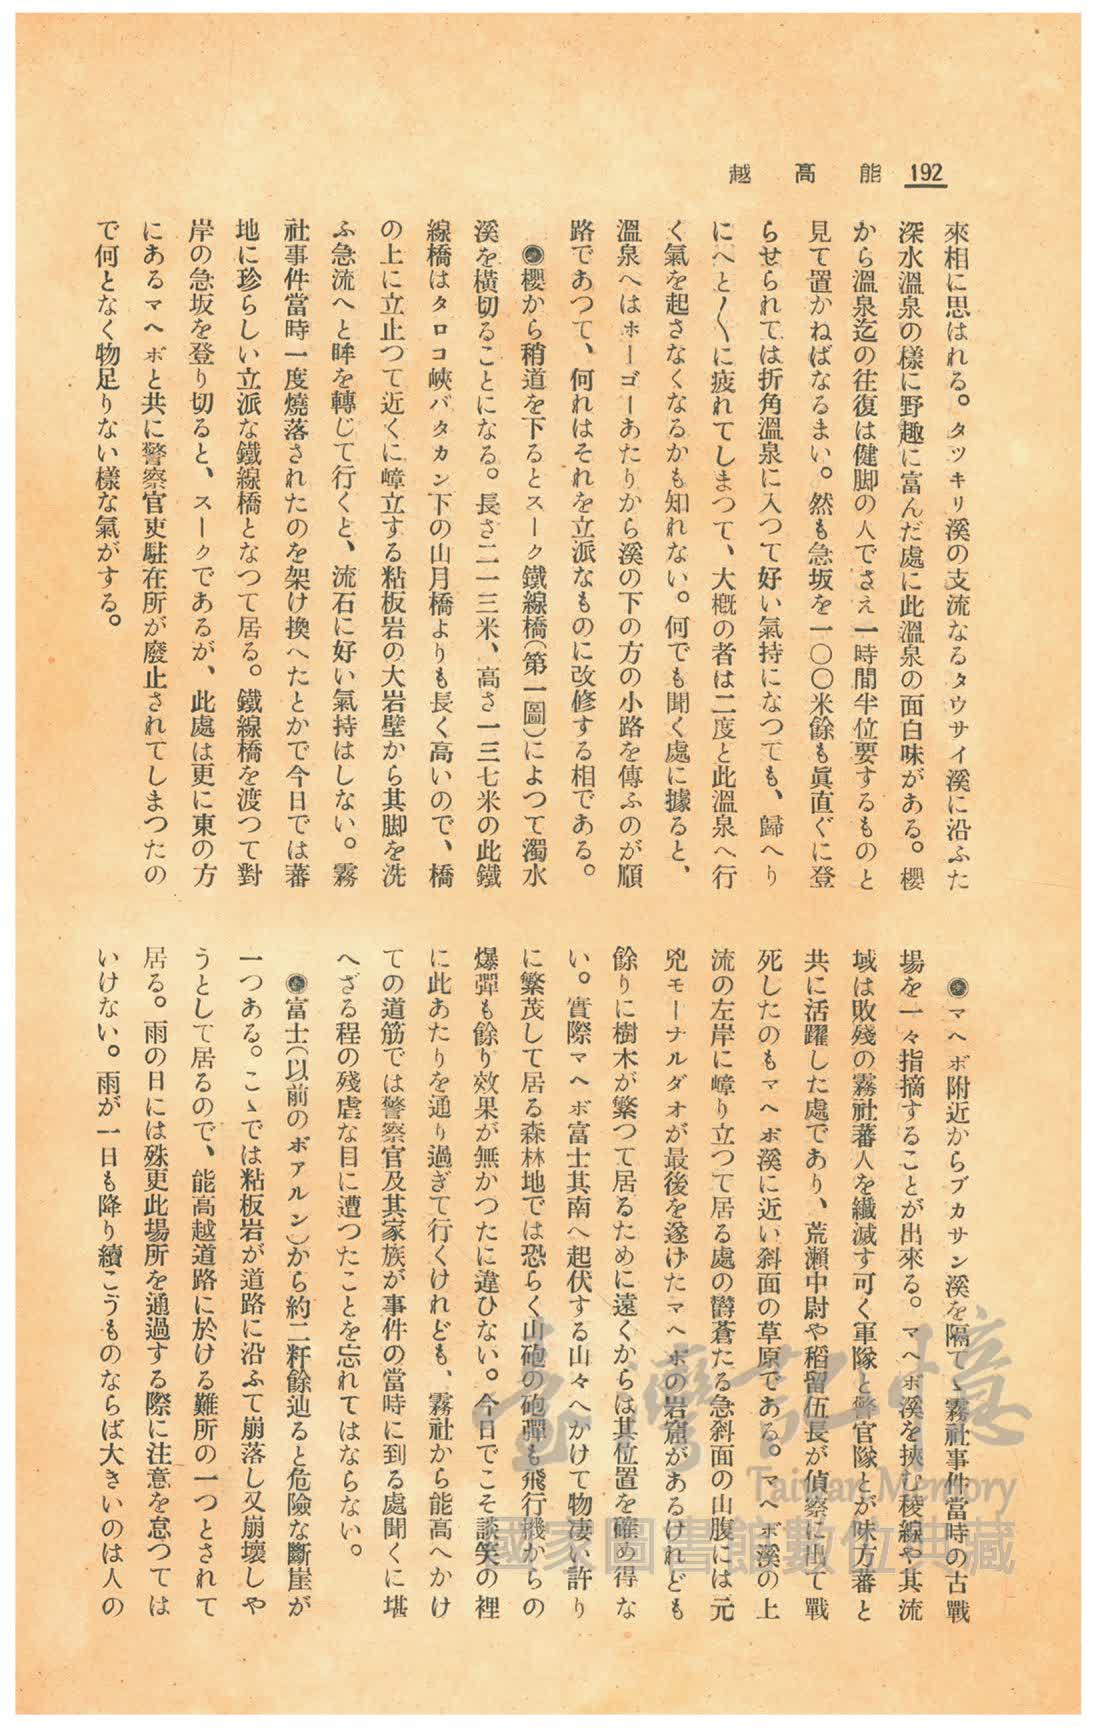 192
能高越
來相に思はれる。タツキリ溪の支流なるタウサイ溪に沿ふた
深水溫泉の樣に野趣に富んだ處に此溫泉の面白味がある。櫻
から溫泉迄の往復は健脚の人でさえ一時間半位要するものと
見て置かねばなるまい。然も急坂を一〇〇米餘も眞直ぐに登
らせられては折角溫泉に入つて好い氣持になつても、歸へり
にへと〱に疲れてしまつて、大槪の者は二度と此溫泉へ行
く氣を起さなくなるかも知れない。何でも聞く處に據ると、
溫泉へはホーゴーあたりから溪の下の方の小路を傳ふのが順
路であつて、何れはそれを立派なものに改修する相である。
◉櫻から稍道を下るとスーク鐵線橋(第一圖)によつて濁水
溪を橫切ることになる。長さ二一三米、高さ一三七米の此鐵
線橋はタロコ峽バタカン下の山月橋よりも長く高いので、橋
の上に立止つて近くに嶂立する粘板岩の大岩壁から其脚を洗
ふ急流へと眸を轉じて行くと、流石に好い氣持はしない。霧
社事件當時一度燒落されたのを架け換へたとかで今日では蕃
地に珍らしい立派な鐵線橋となつて居る。鐵線橋を渡つて對
岸の急坂を登り切ると、スークであるが、此處は更に東の方
にあるマヘボと共に警察官吏駐在所が廢止されてしまつたの
で何となく物足りない樣な氣がする。
◉マヘボ附近からブカサン溪を隔てゝ霧社事件當時の古戰
場を一々指摘することが出來る。マヘボ溪を挾む稜線や其流
域は敗殘の霧社蕃人を纖滅す可く軍隊と警官隊とが味方蕃と
共に活躍した處であり、荒瀨中尉や稻留伍長が偵察に出て戰
死したのもマヘボ溪に近い斜面の草原である。マヘボ溪の上
流の左岸に嶂り立つて居る處の欝蒼たる急斜面の山腹には元
兇モーナルダオが最後を遂げたマヘボの岩窟があるけれども
餘りに樹木が繁つて居るために遠くからは其位置を確め得な
い。實際マヘボ富士其南へ起伏する山々へかけて物凄い許り
に繁茂して居る森林地では恐らく山砲の砲彈も飛行機からの
爆彈も餘り效果が無かつたに違ひない。今日でこそ談笑の裡
に此あたりを通り過ぎて行くけれども、霧社から能高へかけ
ての道筋では警察官及其家族が事件の當時に到る處聞くに堪
へざる程の殘虐な目に遭つたことを忘れてはならない。
◉富士(以前のボアルン)から約二粁餘辿ると危險な斷崖が
一つある。こゝでは粘板岩が道路に沿ふて崩落し又崩壞しや
うとして居るので、能高越道路に於ける難所の一つとされて
居る。雨の日には殊更此場所を通過する際に注意を怠つては
いけない。雨が一日も降り續こうものならば大きいのは人の
臺灣記憶
Taiwan Memory
國家圖書館數位典藏